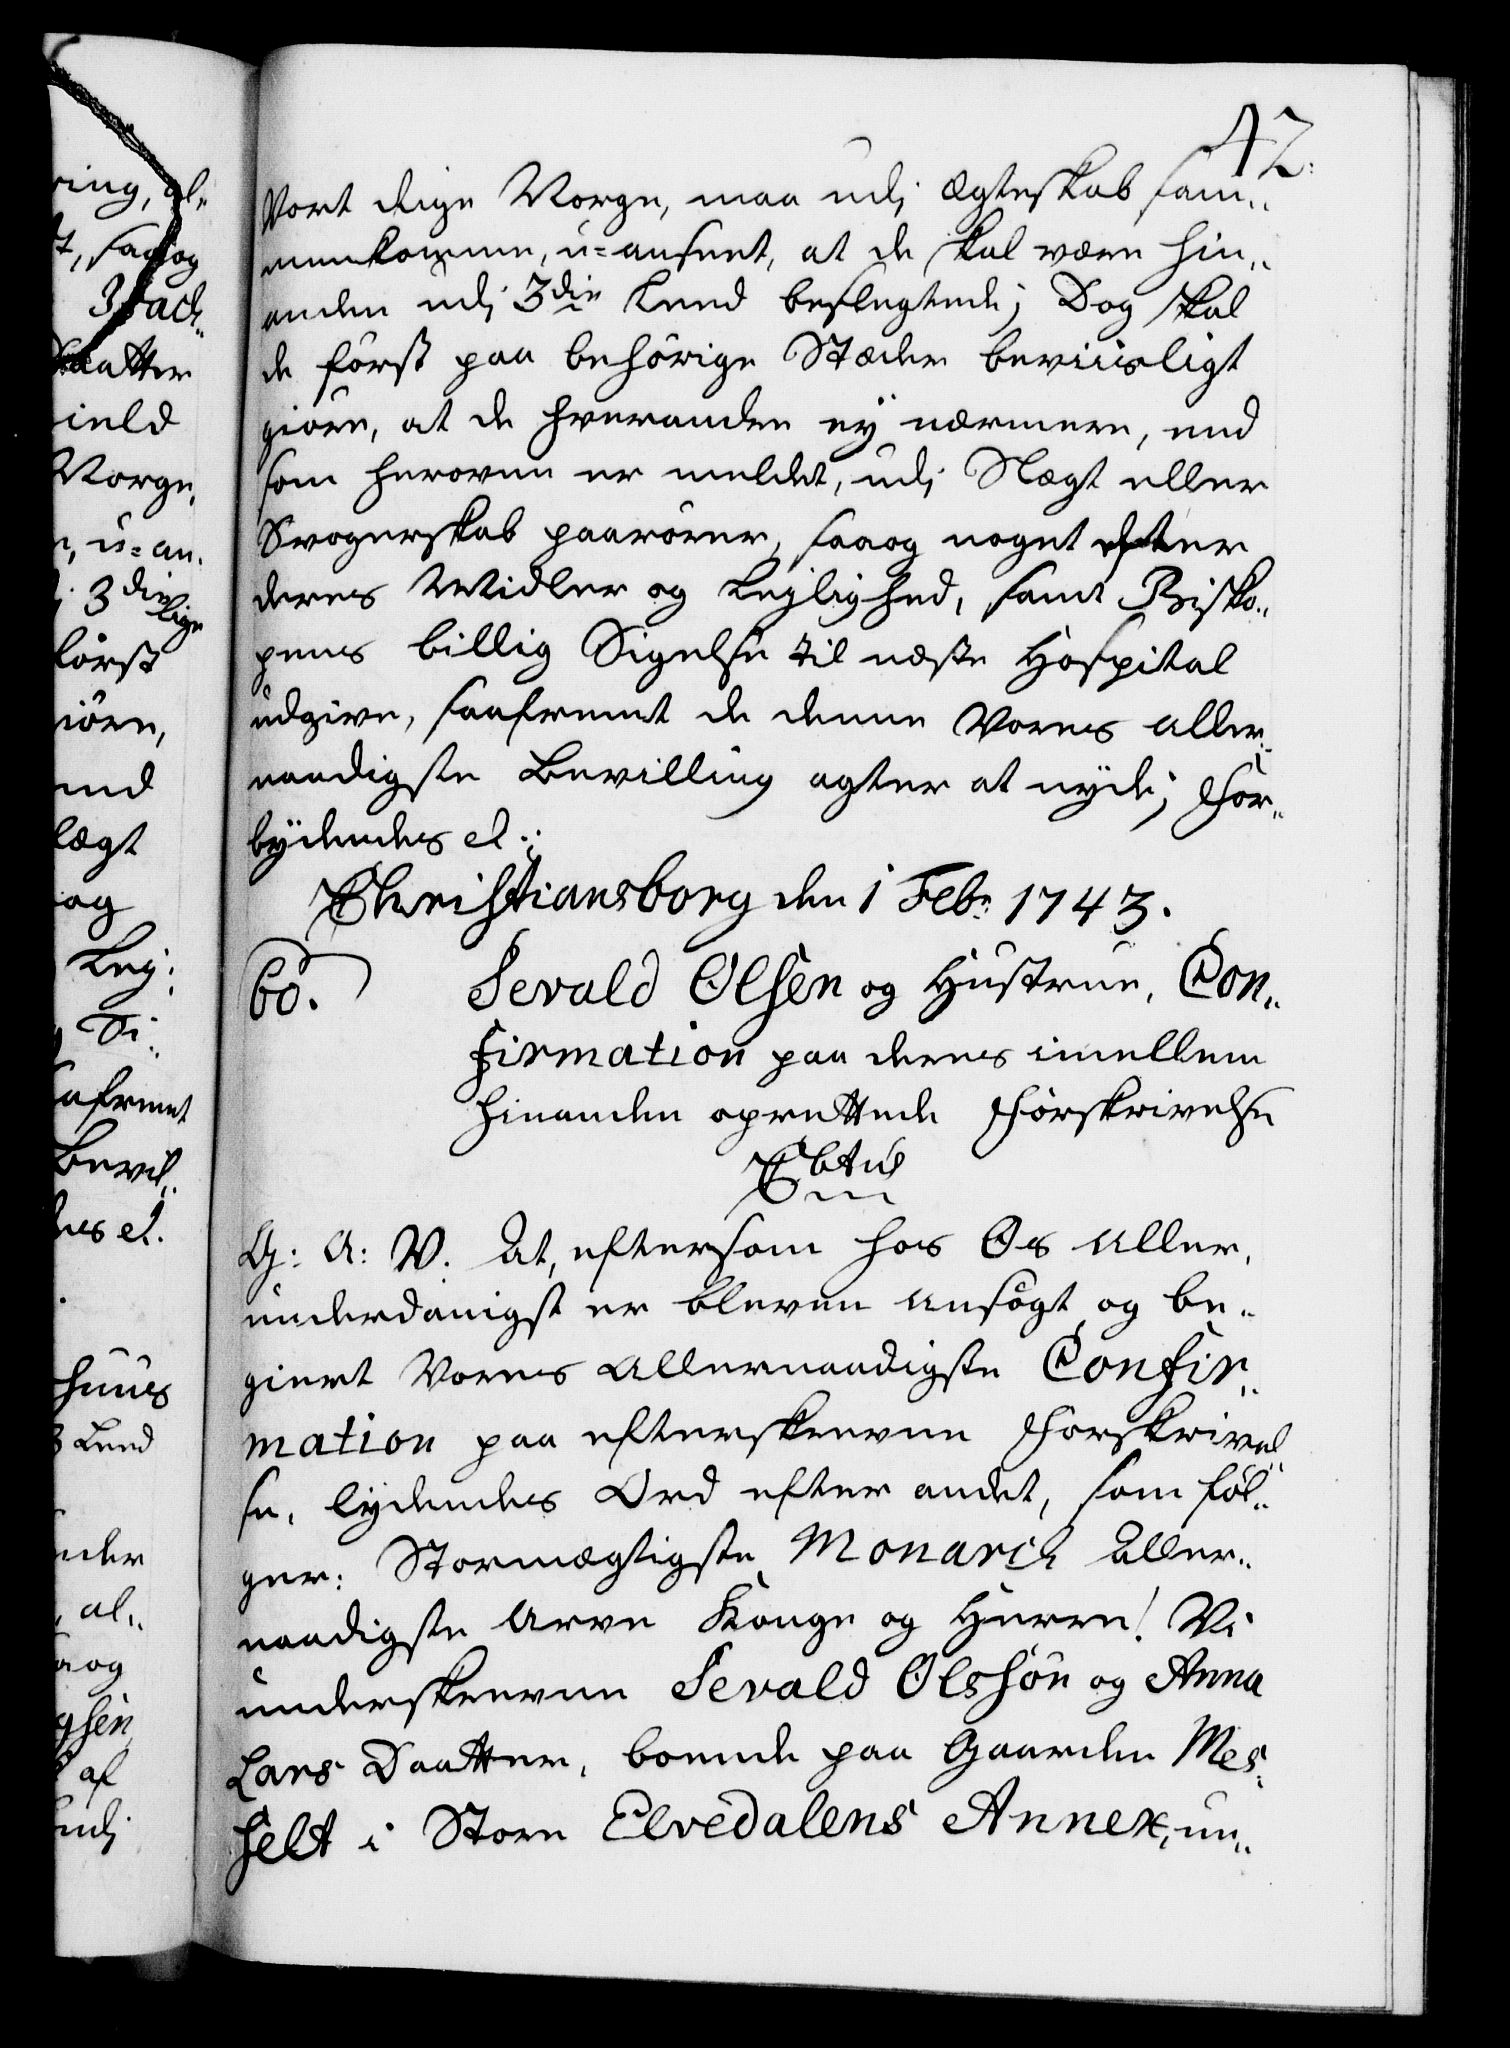 42.
Vort Rige Norge, maa udj Ægteskab sam„
menkomme, u=anseet, at de skal være hin„
anden udj 3die Leed beslegtede; Dog skal
de først paa behørige Stæder beviisligt
giøre, at de hverandre ey nærmere, end
som heroven er meldet, udj Slægt eller
Svogerskab paarører, saaog noget efter
deres Midler og Lejlighed, samt Bisko„
pens billig Sigelse til næste Hospital
udgive, saafremt de denne Vores aller„
naadigste Bevilling agter at nyde; For„
bydendes etc:
Christiansborg den 1 Febr: 1743.
60. Sevald Olsen og Hustrue, Con„
firmation paa deres imellem
hinanden oprettede Forskrivelse
G: A: V. At, eftersom hos Os aller„
underdanigst er bleven ansøgt og be„
giert Vores allernaadigste Confir„
mation paa efterskrevne Forskrivel„
se, lydendes Ord efter andet, som føl„
ger: Stormægtigste Monarch Aller„
naadigste Arve Konge og Herre! Vi
underskrevne Sevald Olssøn og Anna
Lars Daatter, boende paa Gaarden Mes„
selt i Store Elvedalens Annex, un„
ring, al„
t, saaog
Daatter
ield
Norge,
, u=an„
3die
lige
først
iøre,
end
lægt
og
Lej„
Si„
aafremt
Bevil„
des etc.
huus
3 Leed
nder
, al„
aog
gsen
af
udj